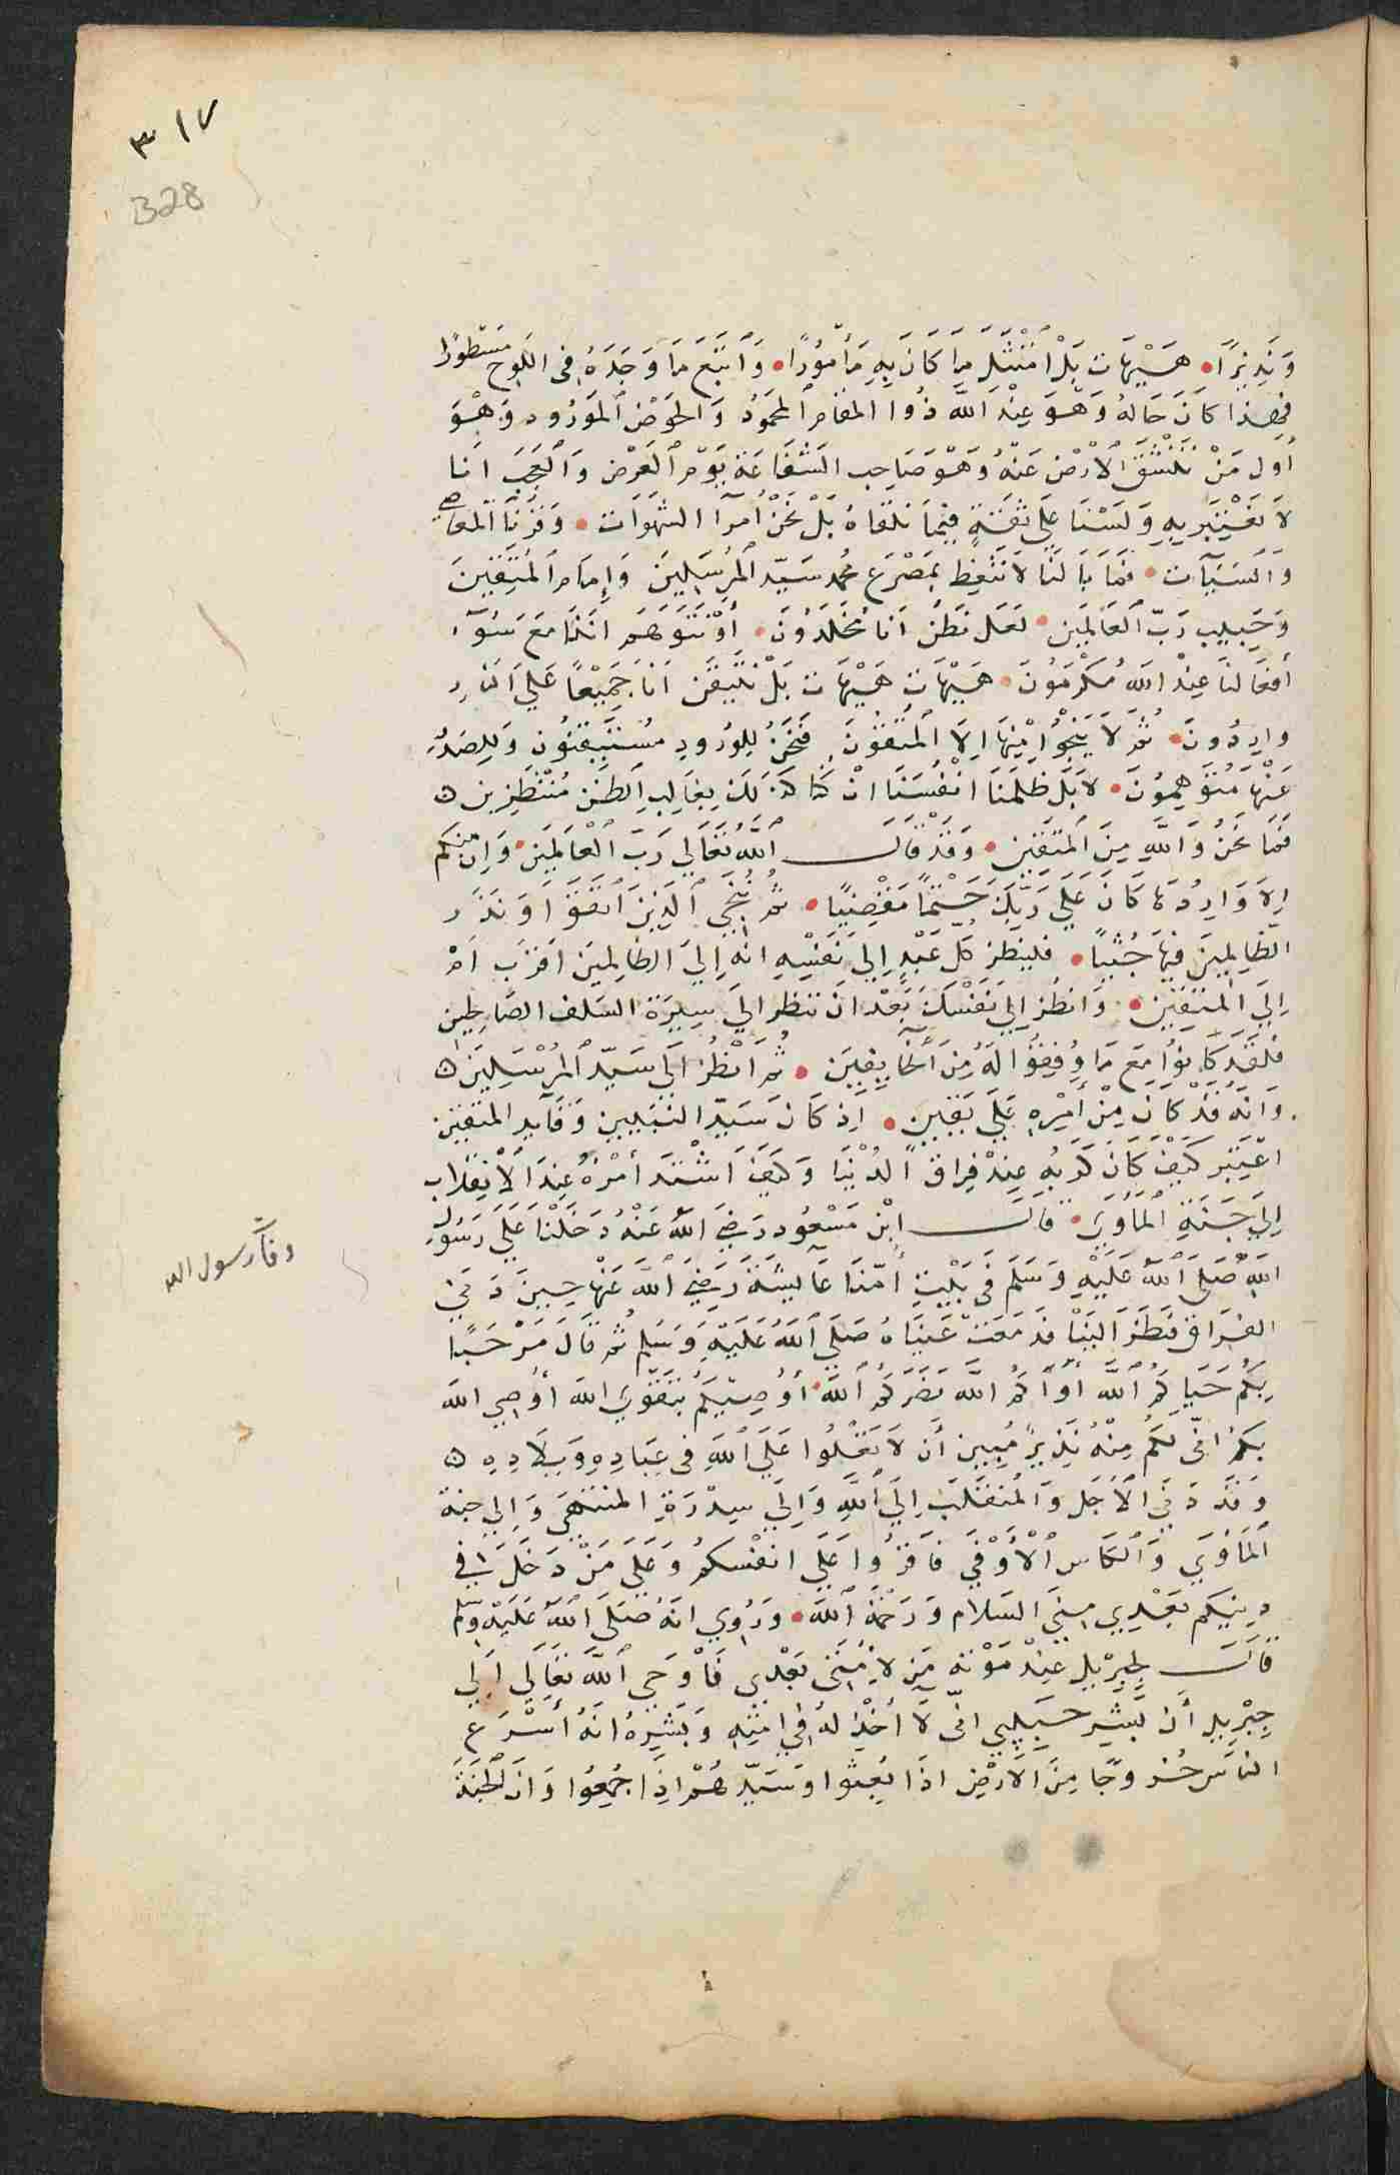 ٣١٧
328
وَنَذِيرًا • هَيْهَاتَ بَلْ امْتَثَلَ مَا كَانَ بِهِ مَأْمُورًا • وَاتَّبَعَ مَا وَجَدَهُ فِي اللَّوْحِ مَسْطُورًا
فهذا كَانَ حَالهُ وَهُوَ عِنْدَ اللَّه ذُوا المقام المحمُود وَالحوْض المَوْرُود وَهْوَ
أول مَنْ تَنْشَقّ الأرْض عَنْهُ وَهْوَ صَاحِب الشَّفَاعَة يَوْم العَرْض وَالعَجَب انا
لا نَعْتَبِر بِهِ وَلَسْنَا عَلَى ثقَةٍ فِيمَا نَلْقَاهُ بَلْ نَحْنُ أسرَآ الشَّهَوَات • وَقرنَآ المعاصي
وَالسَّيِّآت • فَمَا بَالُنَا لا نَتَّعِظ بِمَصْرَع محمد سَيّد المُرْسَلِينَ وَإِمَام المُتَّقِينَ
وَحَبِيب رَبّ العَالمِينَ • لَعَلّ نَظُنّ أنّا مُخَلَّدُونَ • أوْ نَتَوَهَّم اننا مَعَ سُوء
أفعَالنا عِنْدَ اللَّه مُكْرَمُونَ • هَيْهَات هَيْهَات بَلْ نَتَيَقّن انّا جَمِيْعًا عَلَى النّار
وارِدُونَ • ثُمَّ لا يَنْجُوْا مِنْهَا إلا المُتّقُونَ فَنَحْنُ لِلوُرُودِ مُسْتَيْقِنُون وَلِلصَدُر
عَنْهَا مُتَوَهِّمُونَ • لا بَلْ ظلَمْنَا انْفُسَنَا انْ كنا كَذَلكَ بِغَالِبِ الظنّ مُنْتَظِرِين ٥
فَمَا نَحْنُ وَاللَّهِ مِنَ المتّقين • وَقَدْ قَالَ اللَّهُ تَعَالى رَبّ العَالمَين • وَإن منكم
إلا وَارِدُهَا كَانَ عَلَى رَبِّكَ حَتْمًا مَقْضِيًا • ثم نُنجّي الَّذِينَ اتقَوْا وَنَذَر
الظَّالِمِينَ فِيهَا جُثيًا • فلينظر كلّ عَبْدٍ إلى نَفْسِهِ انه إلى الظالمينَ اقرَب أمْ
إلى المتّقين • وَانظُر إلى نَفْسكَ بَعْدَ ان تنظر إلى سِيرَة السَّلف الصَّالحين
فلقَد كَانُوا مَعَ مَا وُفِّقُوا لَهُ مِنَ الخَآيِفِينَ • ثُمَّ انْظُر إلى سَيّد المُرْسَلِينَ ٥
وَانّه قَدْ كان مِنْ أمْرِهِ عَلَى يَقِينٍ • إذ كَانَ سَيّد النَّبِيّين وَقَايد المتّقين
اعْتَبِر كَيْفَ كَانَ كَرْبُه عِنْدَ فِرَاق الدُّنْيَا وَكَيْفَ اشْتَدّ أمْرُهُ عِنْدَ الانْقِلاب
إلى جَنّةِ المَأْوَى • قَالَ ابْن مَسْعُود رَضِيَ اللَّه عَنْهُ دَخَلْنَا عَلَى رَسُول
اللَّهِ صَلَّى اللَّه عَلَيْهِ وَسَلَّم فِي بَيْتِ أمّنَا عَآئِشَة رَضِيَ اللَّه عَنْها حِينَ دَنى
وفاة رسول الله
الفِرَاق فَنَظَر الَيْنَا فدمَعَتْ عَيْنَاهُ صَلَّى اللَّه عَلَيْهِ وَسَلم ثُمّ قَالَ مَرْحَبًا
بِكُمْ حَيَّاكُم اللَّه أوَآكم اللَّه نَصَرَكُم اللَّه • أوُصِيْكُم بتَقْوَى اللَّه أوْصِي اللَّه
بكم انّي لَكُم مِنْهُ نَذِيرٌ مُبِين أن لا تَعْلُوا عَلَى اللَّهِ في عِبَادِهِ وَبِلَادِهِ ٥
وَقَد دَنَى الأجَل وَالمُنْقَلَبُ إلى اللَّهِ وَإلى سِدْرَةِ المنْتَهَى وَإلى جنة
المَأوَى وَالكَاس الأَوْفَى فَاقرَؤُا عَلَى انْفُسكُم وَعَلَى مَنْ دَخَلَ في
دِينِكم بَعْدِي مِنّي السَّلام وَرَحْمَة اللَّه • وَرُوِي انهُ صَلَّى اللَّه عَلَيْهِ وَسَلم
قَالَ لجبْرِيل عِنْدَ مَوْتِه مَن لأمّتِي بَعْدِي فَأوْحَى اللَّه تَعَالى إلى
جِبْرِيل أن بَشّر حَبِيبي انّي لا أخْذلهُ فِي امّتِهِ وَبَشّرهُ انّهُ أسْرَع
النّاس خُروجًا مِنَ الأرْض اذَا بُعِثُوا وَسَيّدهُمْ اذِا جُمِعُوا وَانّ الجَنَّةَ